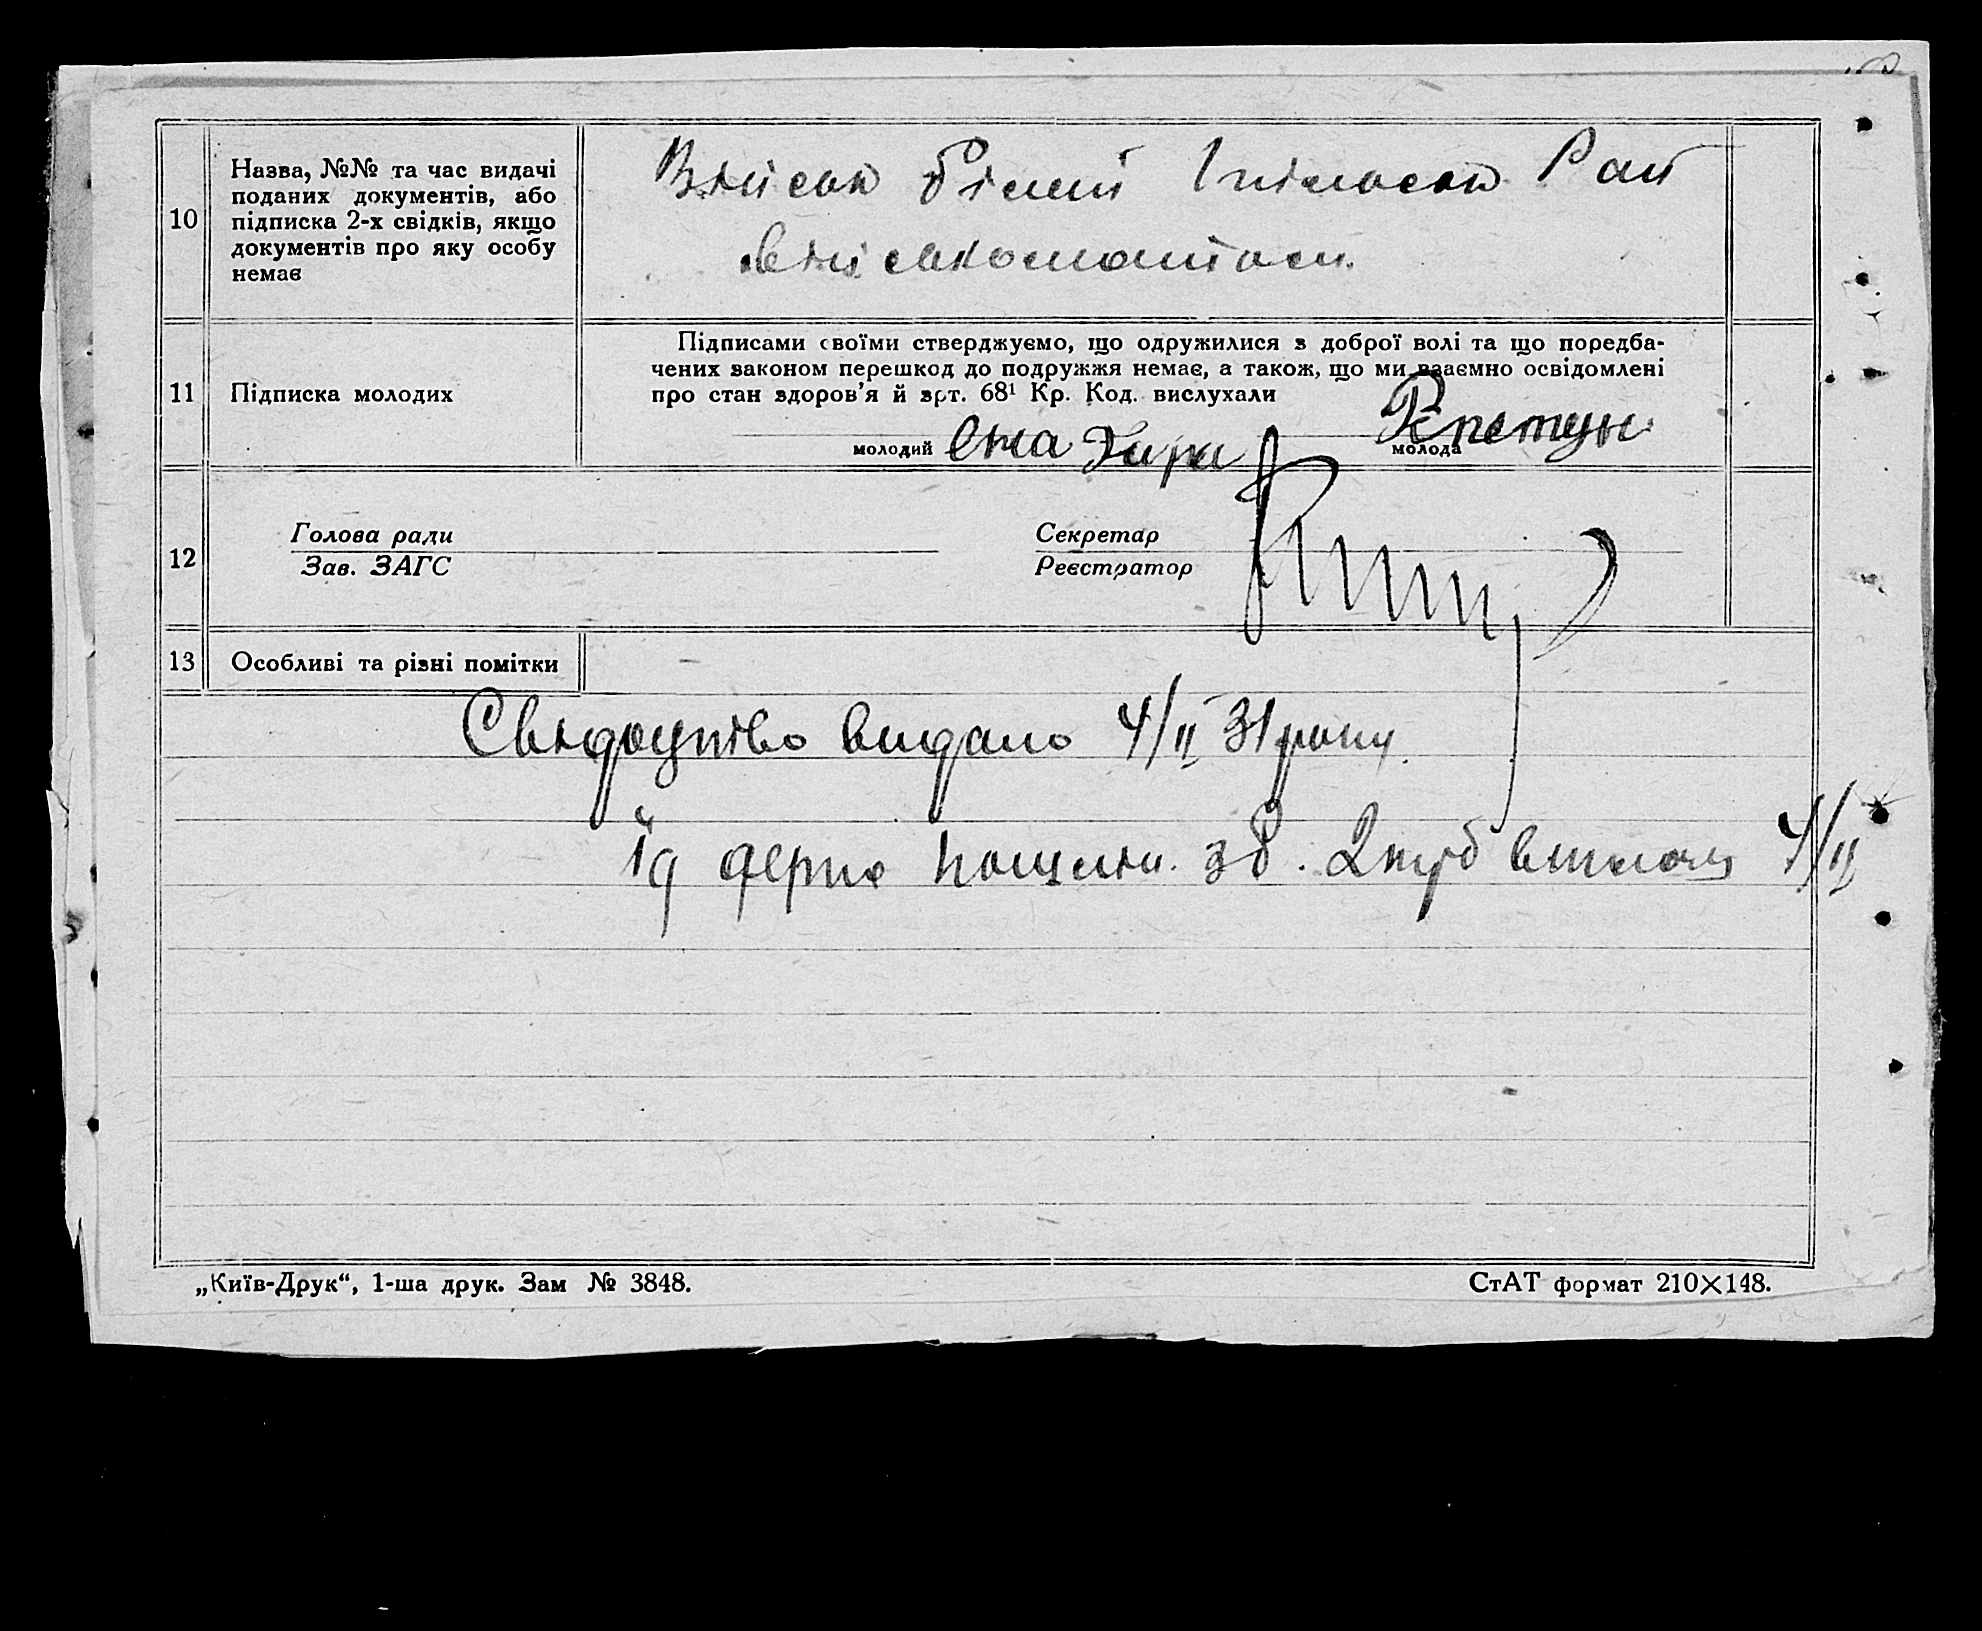 10
Назва, №№ та час видачі
поданих документів, або
підписка 2-х свідків, якщо
документів про яку особу
немає
Військ білет Рай
військоматом.
11
Підписка молодих
Підписами своїми стверджуємо, що одружилися з доброї волі та що поредба-
чених законом перешкод до подружжя немає, а також, що ми взаємно освідомлені
про стан здоров'я й арт. 68¹ Кр. Код. вислухали
молодий
молода
12
Голова ради
Зав. ЗАГС
Секретар
Реєстратор
13
Особливі та різні помітки
Свідоцтво видано 4/II 31 року
держ зб. 2 крб 4/II
„Київ-Друк“, 1-ша друк. Зам № 3848.
СтАТ формат 210×148.